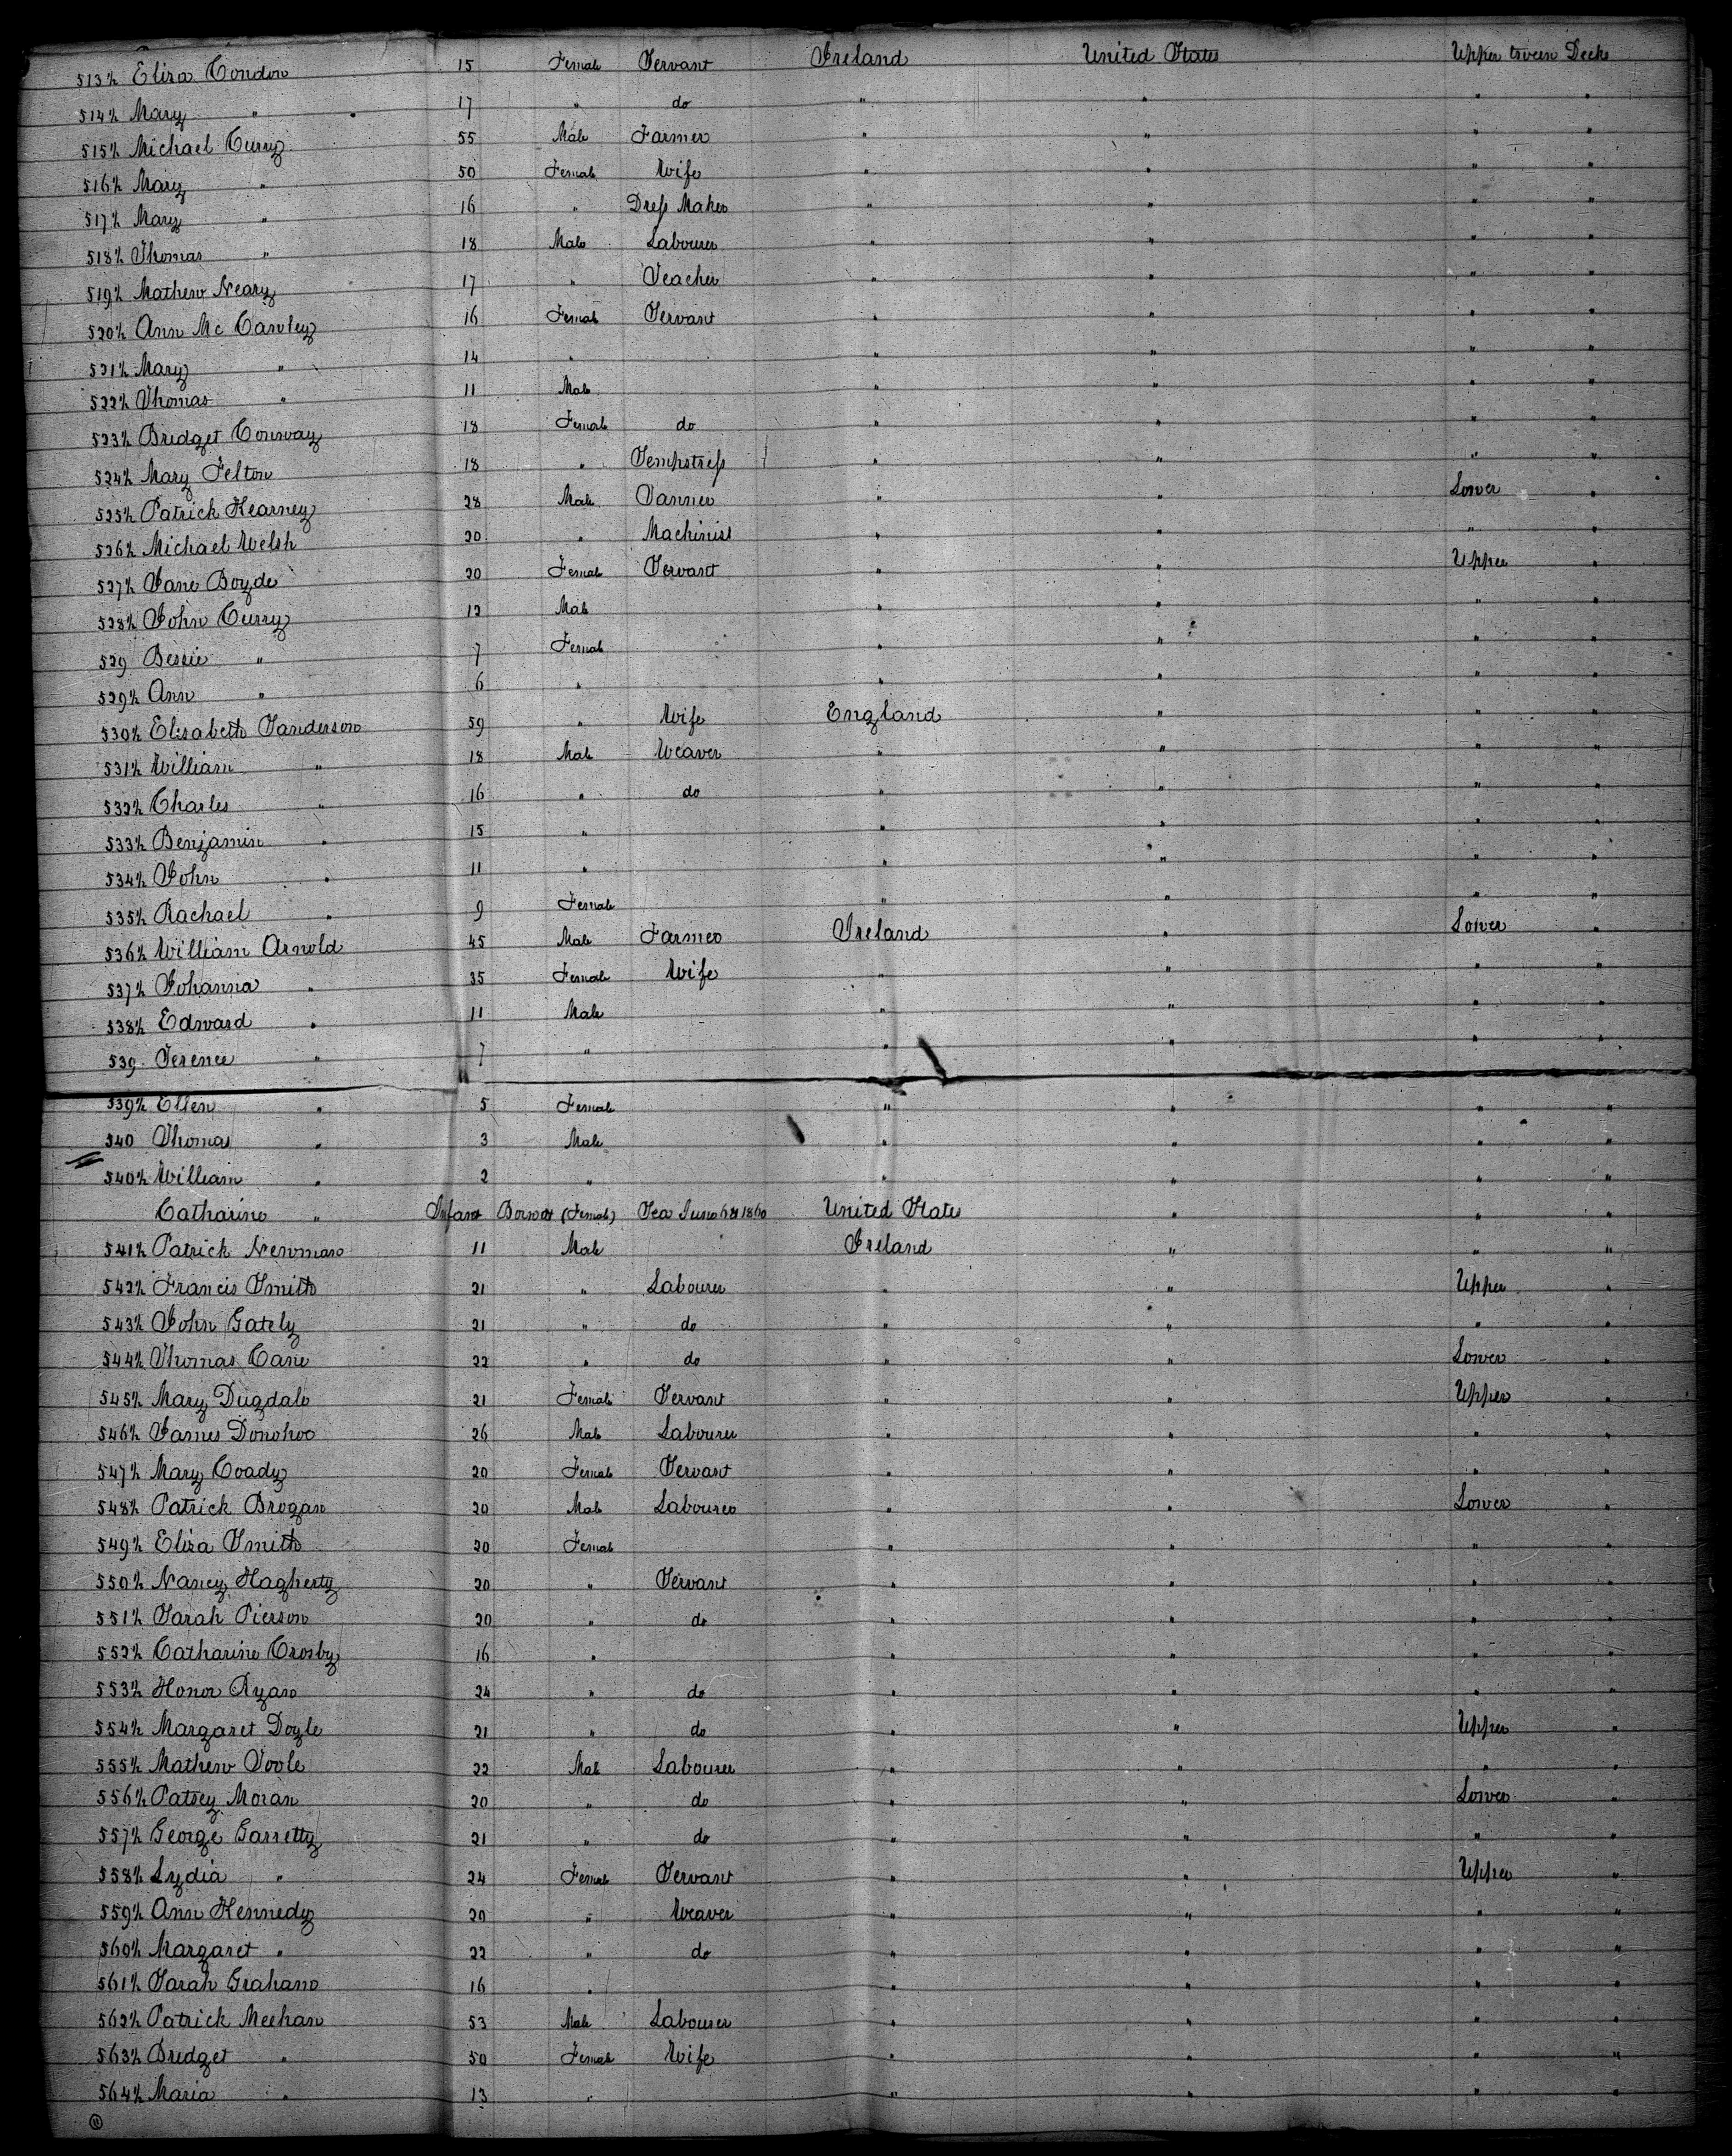 513½ Eliza Condon 15 Female Servant Ireland United States Upper tween Decks
514½ Mary " 17 " do " " " "
515½ Michael Curry 55 Male Farmer " " " "
516½ Mary " 50 Female Wife " " " "
517½ Mary " 16 " Dress Maker " " " "
518½ Thomas " 18 Male Labourer " " " "
519½ Mathew Neary 17 " Teacher " " " "
520½ Ann Mc Cawley 16 Female Servant " " " "
521½ Mary " 14 " " " " "
522½ Thomas " 11 Male " " " "
523½ Bridget Conway 18 Female do " " " "
524½ Mary Felton 18 " Sempstress " " " "
525½ Patrick Kearney 28 Male Tanner " " Lower "
526½ Michael Welsh 20 " Machinist " " " "
527½ Jane Boyde 20 Female Servant " " Upper "
528½ John Curry 12 Male " " " "
529 Bessie " 7 Female " " " "
529½ Ann " 6 " " " " "
530½ Elisabeth Sanderson 59 " Wife England " " "
531½ William " 18 Male Weaver " " " "
532½ Charles " 16 " do " " " "
533½ Benjamin " 15 " " " " "
534½ John " 11 " " " " "
535½ Rachael " 9 Female " " " "
536½ William Arnold 45 Male Farmer Ireland " Lower "
537½ Johanna " 35 Female Wife " " " "
538½ Edward " 11 Male " " " "
539 Terence " 7 " " " " "
539½ Ellen " 5 Female " " " "
540 Thomas " 3 Male " " " "
540½ William " 2 " " " " "
Catharine " Infant Born at (Female) Sea June 6th 1860 United States " " "
541½ Patrick Newman 11 Male Ireland " " "
542½ Francis Smith 21 " Labourer " " Upper "
543½ John Gately 21 " do " " " "
544½ Thomas Cane 22 " do " " Lower "
545½ Mary Dugdale 21 Female Servant " " Upper "
546½ James Donohoo 26 Male Labourer " " " "
547½ Mary Coady 20 Female Servant " " " "
548½ Patrick Brogan 20 Male Labourer " " Lower "
549½ Eliza Smith 20 Female " " " "
550½ Nancy Hagherty 20 " Servant " " " "
551½ Sarah Pierson 20 " do " " " "
552½ Catharine Crosby 16 " " " " "
553½ Honor Ryan 24 " do " " " "
554½ Margaret Doyle 21 " do " " Upper "
555½ Mathew Toole 22 Male Labourer " " " "
556½ Patsey Moran 20 " do " " Lower "
557½ George Garretty 21 " do " " " "
558½ Lydia " 24 Female Servant " " Upper "
559½ Ann Kennedy 20 " Weaver " " " "
560½ Margaret " 22 " do " " " "
561½ Sarah Graham 16 " " " " "
562½ Patrick Meehan 53 Male Labourer " " " "
563½ Bridget " 50 Female Wife " " " "
564½ Maria " 13 " " " " "
11